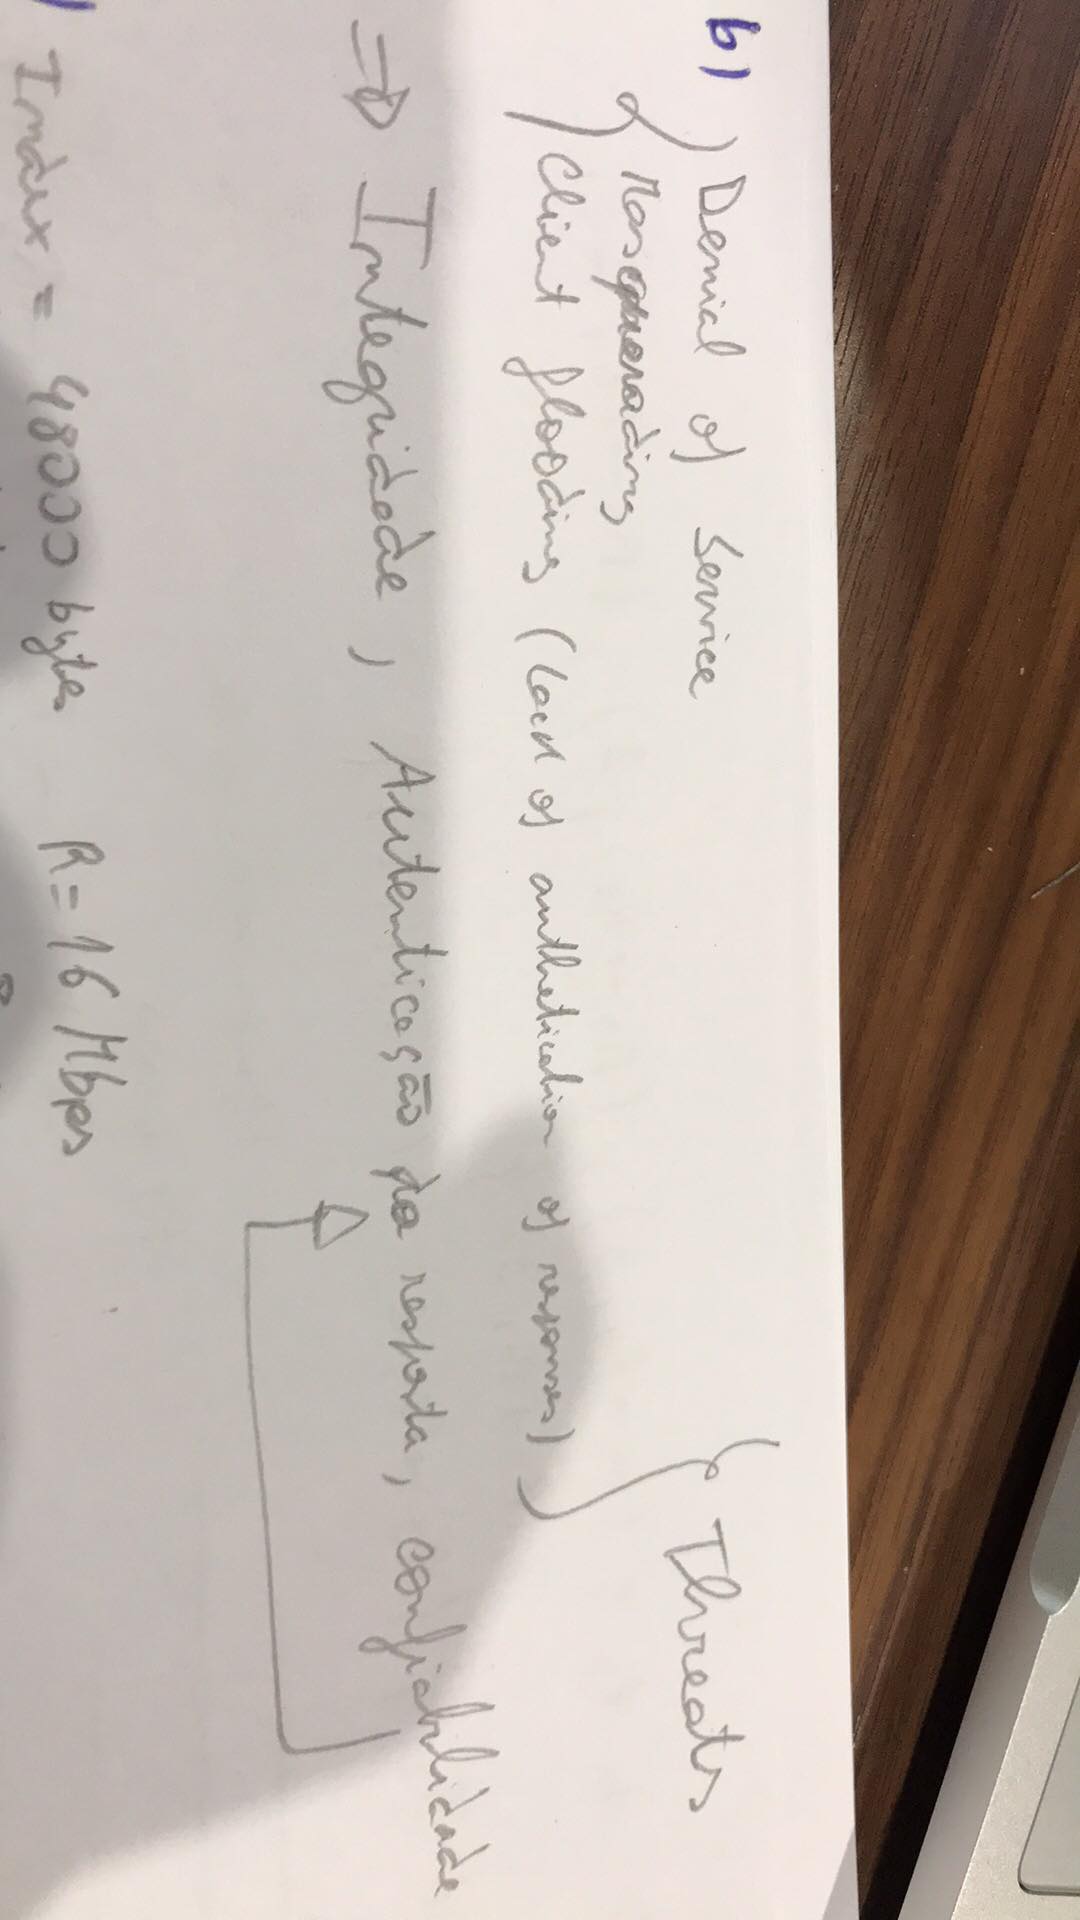 b) Denial of Service
Masquerading
Client flooding (Lack of authetication of responses)
Threats
=> Integridade, Autenticação da resposta, confiabilidade
Index = 48000 bytes R = 16 Mbps